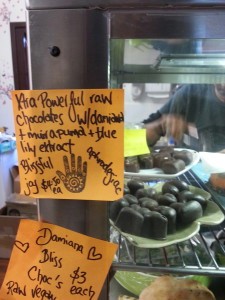 Xtra Powerful raw
chocolates w/damiana
+ muira puma + blue
lily extract
Blissful aphrodisiac
joy $4.50
ea
Damiana
Bliss
Choc's $3
Raw vegan each